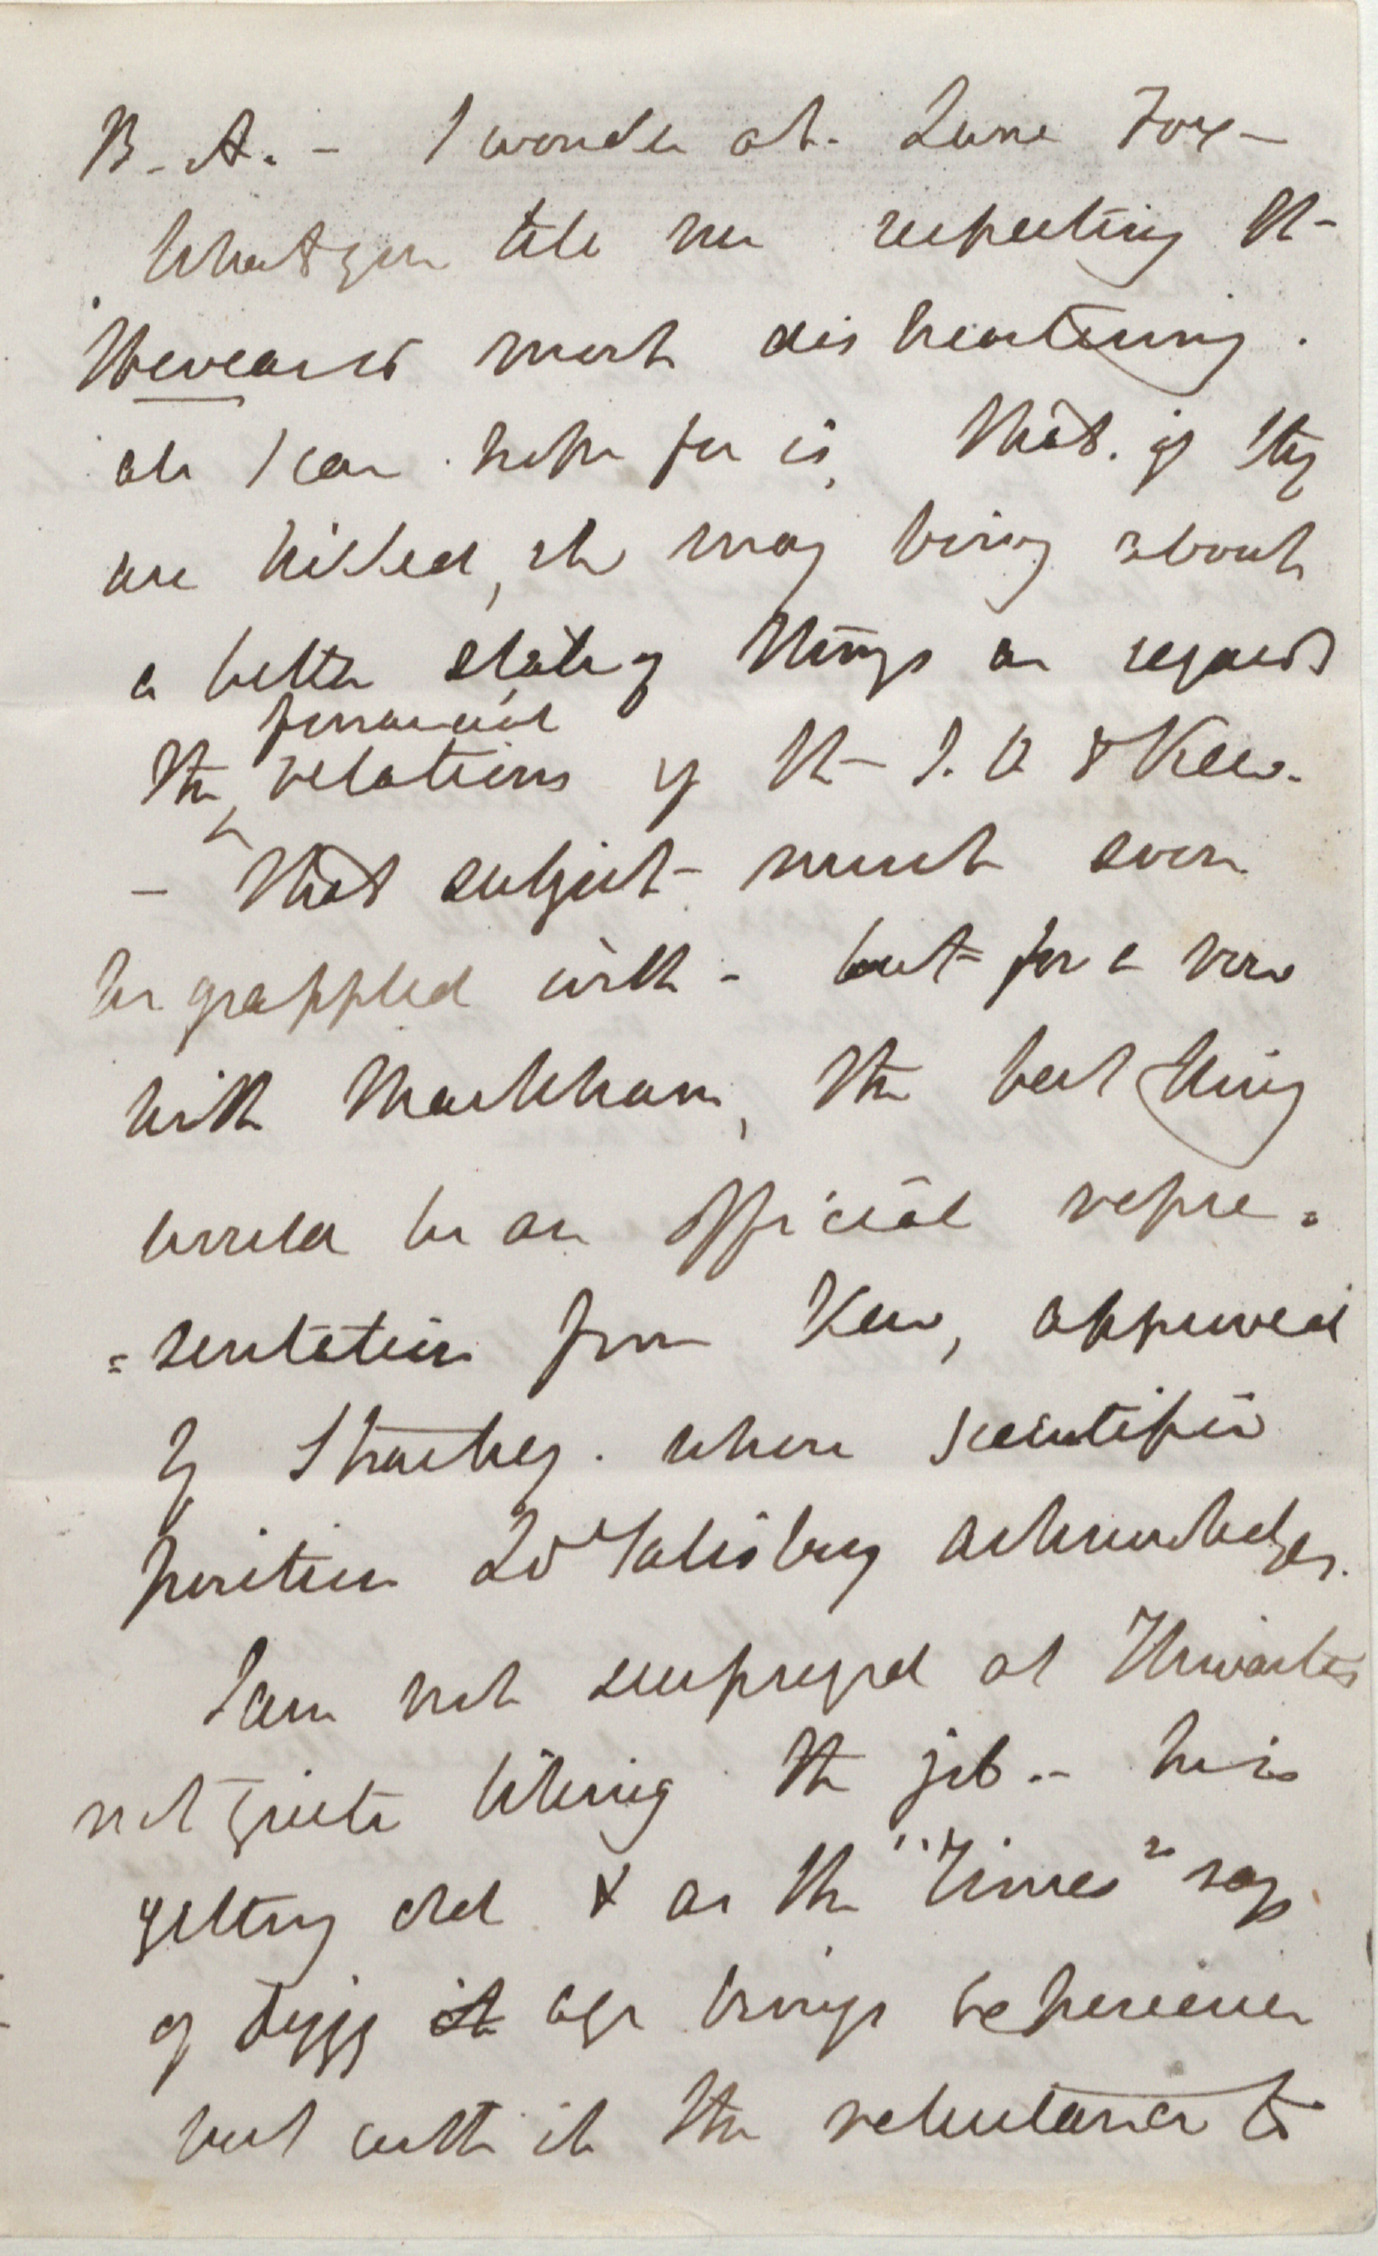 B.A. – I wonder at Lane Fox –
What you tell me respecting the
Heveas is most disheartening.
all I can hope for is, that if they
are killed, it may bring about
a better state of things as regards
the financial relations of the I.O & Kew.
– that subject must soon
be grappled with – but for a row
with Markham, the best thing
would be an official repre=
=sentation from Kew, approved
by Strachey. whose scientific
position Ld Salisbury acknowledges.
I am not surprized at Thwaites
not quite liking the job – he is
getting old & as the "Times" says
of it age brings experience
but with it the reluctance to